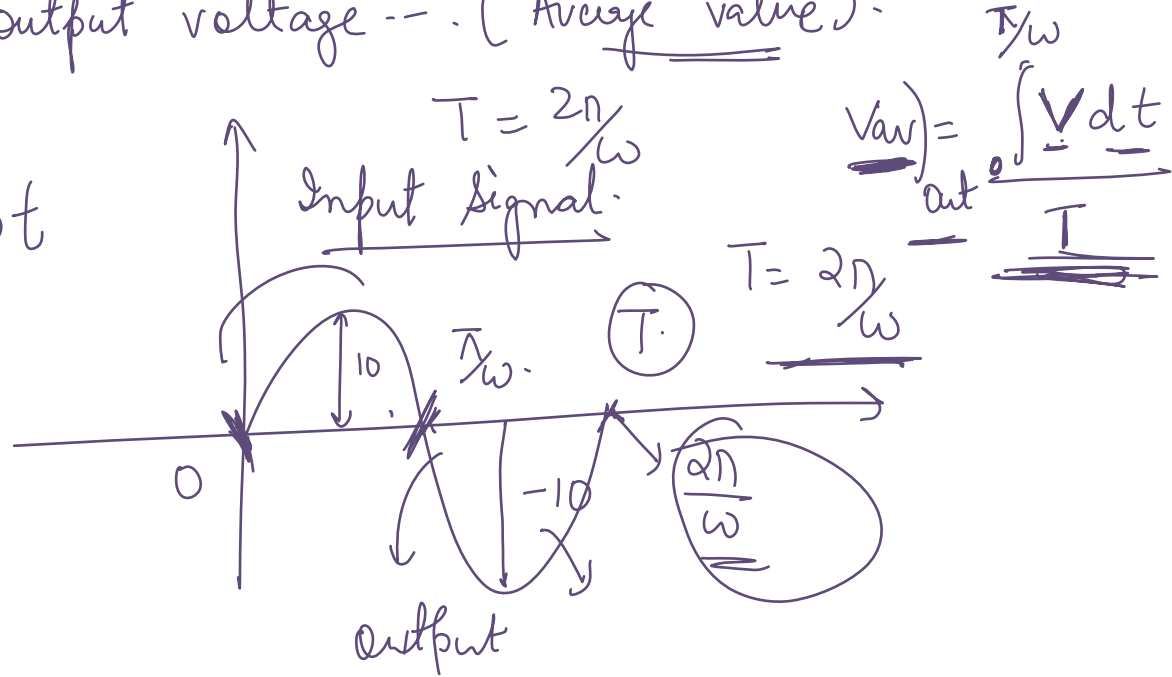 output voltage --- . ( Average value ) .
T = 2π/ω
Vav)out = ∫₀^π/ω V dt / T
t
Input Signal .
T = 2π/ω
T .
π/ω .
10
0
-10
2π/ω
output